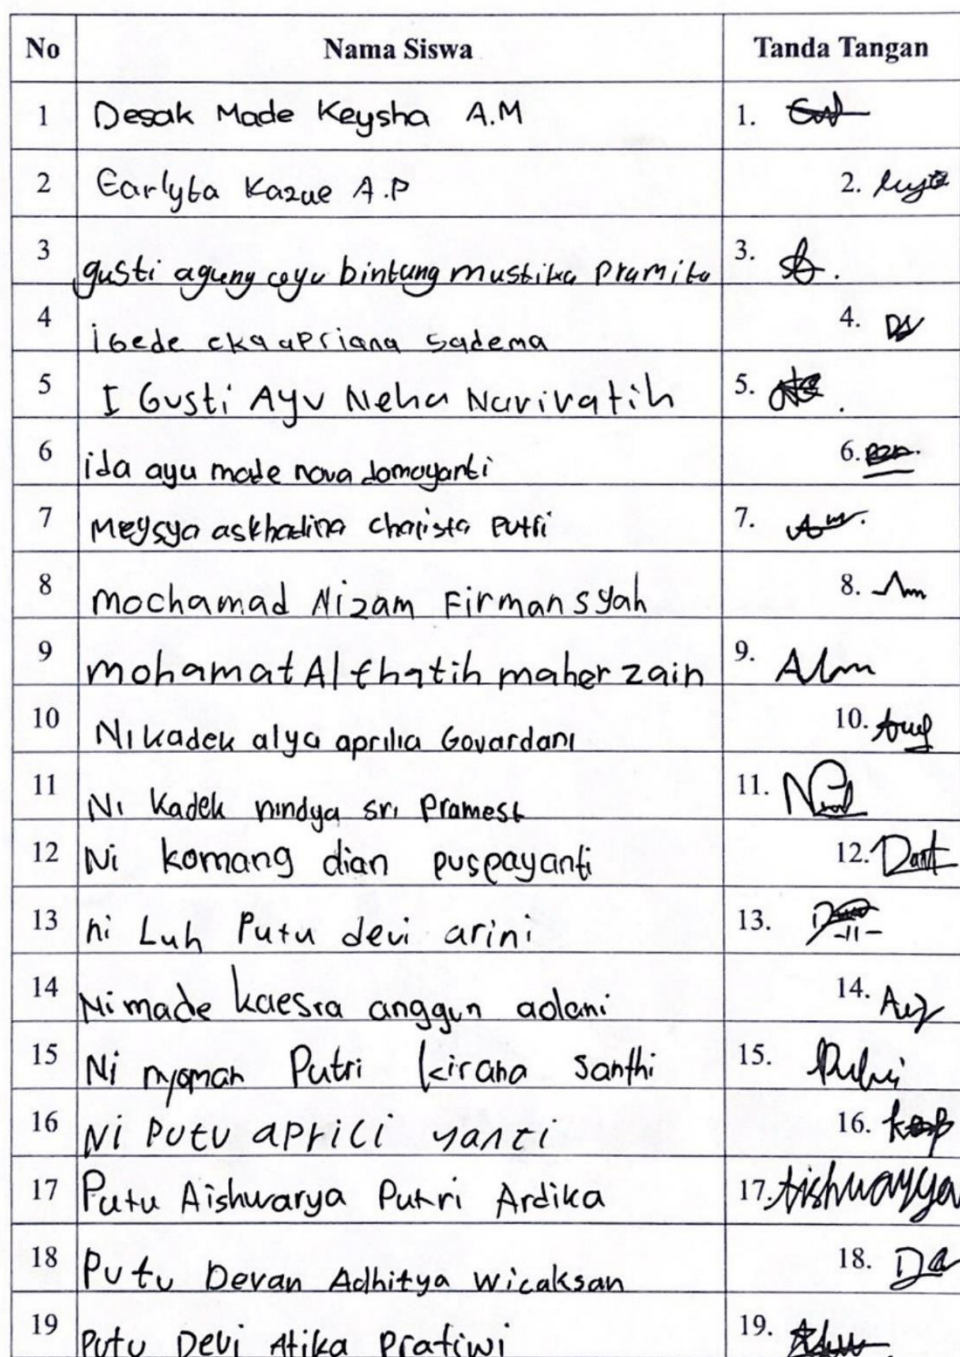 No Nama Siswa Tanda Tangan
1 Desak Made Keysha A.M 1.
2 Earlyta Kazue A.P 2.
3 gusti agung ayu bintang mustika Pramita 3.
4 i Gede eka apriana sadema 4.
5 I Gusti Ayu Neha Nariratih 5.
6 ida ayu made nova damayanti 6.
7 Meysya askhadina charista Putri 7.
8 mochamad Nizam Firmansyah 8.
9 mohamat Al fhatih maher zain 9.
10 Ni kadek alya aprilia Govardani 10.
11 Ni kadek nindya sri Pramest 11.
12 Ni komang dian puspayanti 12.
13 ni Luh Putu devi arini 13.
14 Ni made kaesra anggun adani 14.
15 Ni nyoman Putri kirana Santhi 15.
16 Ni Putu aprici yanti 16.
17 Putu Aishwarya Putri Ardika 17. Aishwarya
18 Putu Devan Adhitya Wicaksan 18.
19 Putu Devi Atika Pratiwi 19.